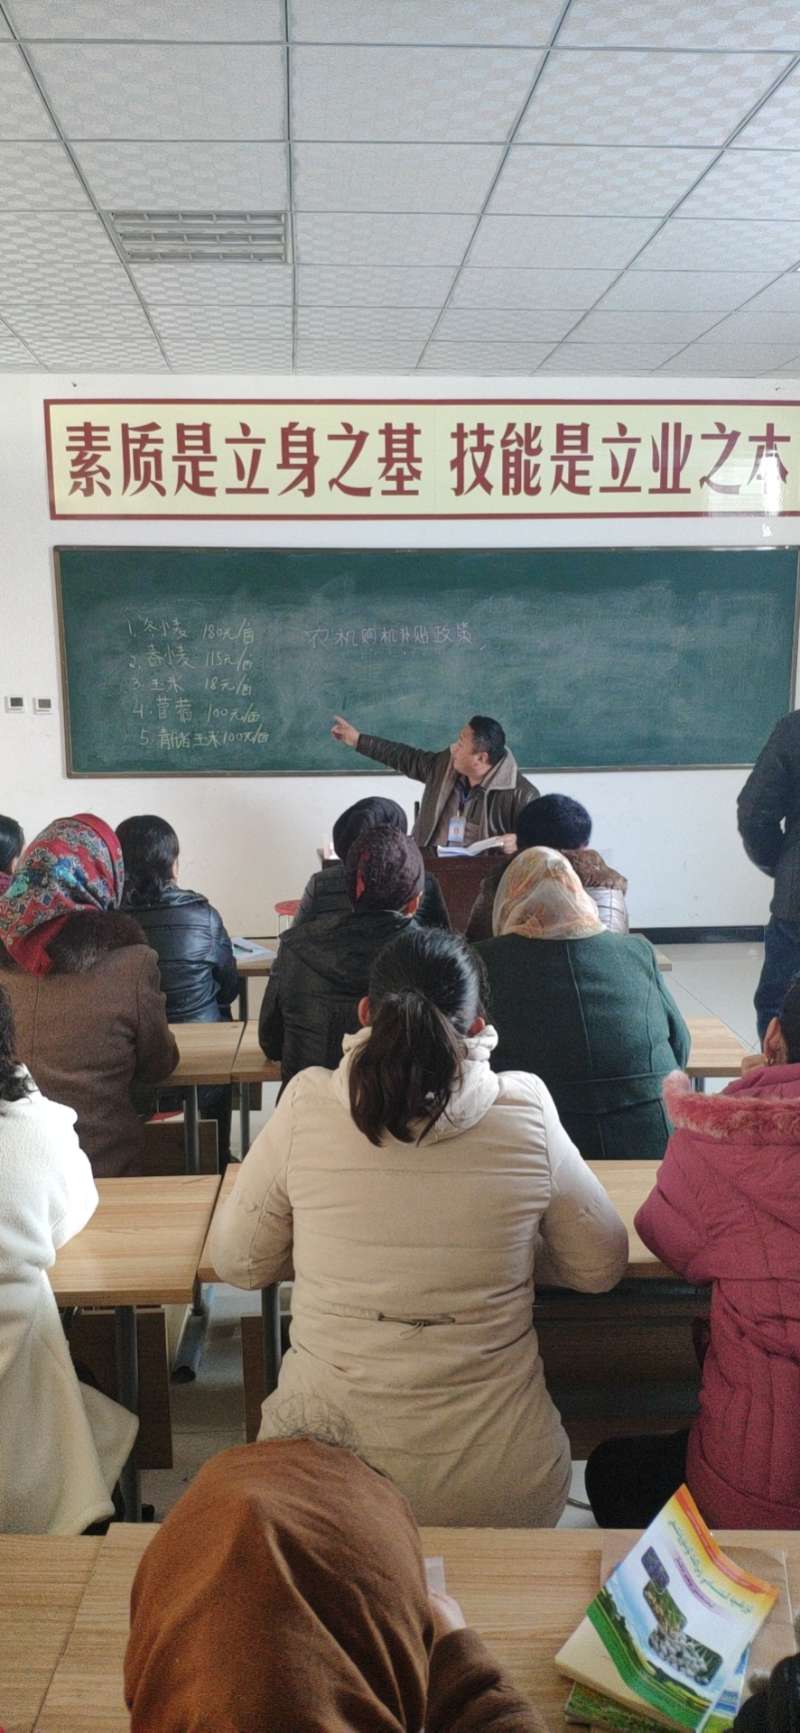 素质是立身之基 技能是立业之本
1. 冬小麦 180元/亩
2. 春小麦 115元/亩
3. 玉米 18元/亩
4. 苜蓿 100元/亩
5. 青储玉米100元/亩
农机购机补贴政策